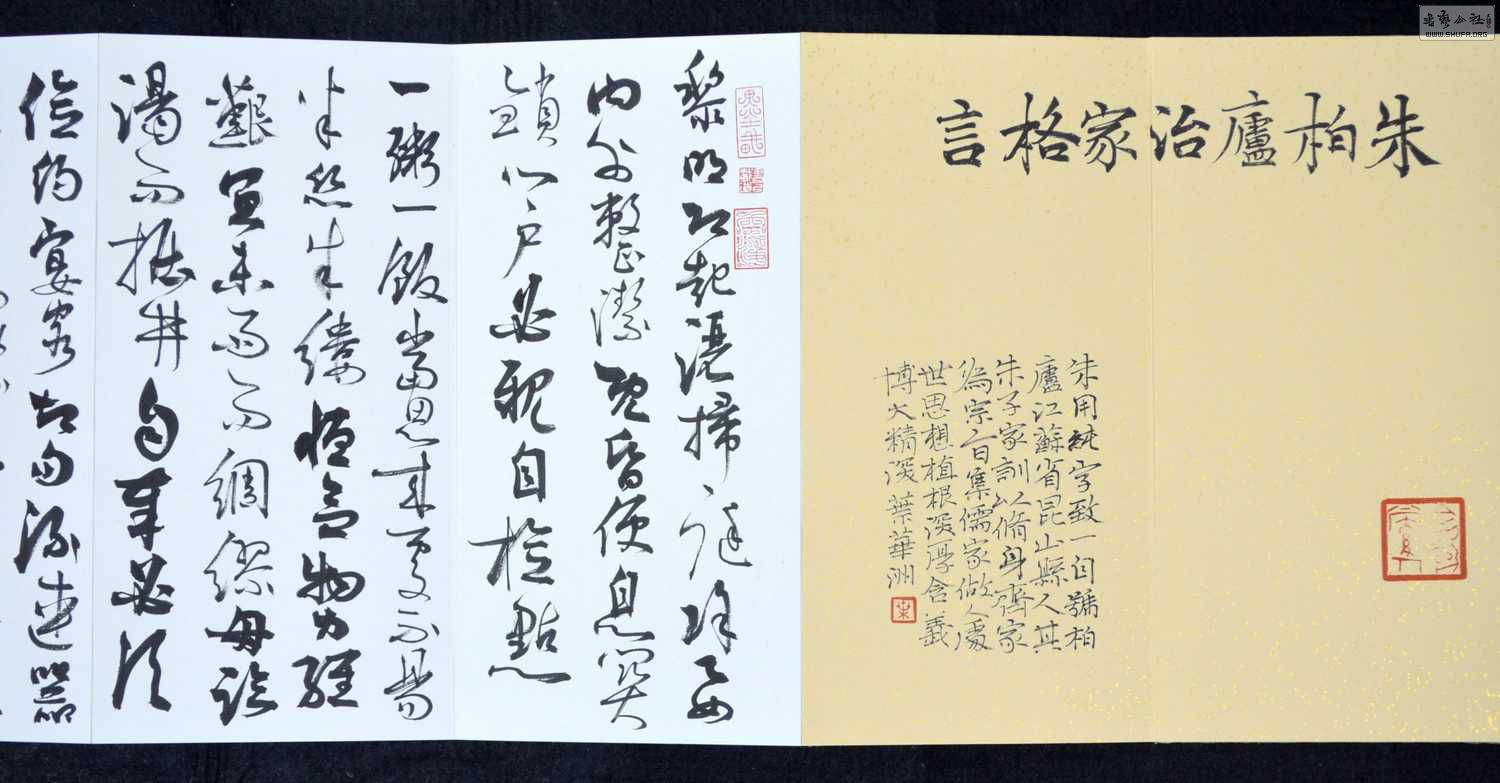 書藝公社
WWW.SHUFA.ORG
朱柏廬治家格言
朱用純字致一自號柏
廬江蘇省昆山縣人其
朱子家訓以脩身齊家
為宗旨集儒家做人處
世思想植根深厚含義
博大精深葉華洲
黎明即起灑掃庭除要
內外整潔既昏便息關
鎖門戶必親自檢點
一粥一飯當思來處不易
半絲半縷恒念物力維
艱宜未雨而綢繆毋臨
渴而掘井自奉必須
儉約宴客切勿流連器